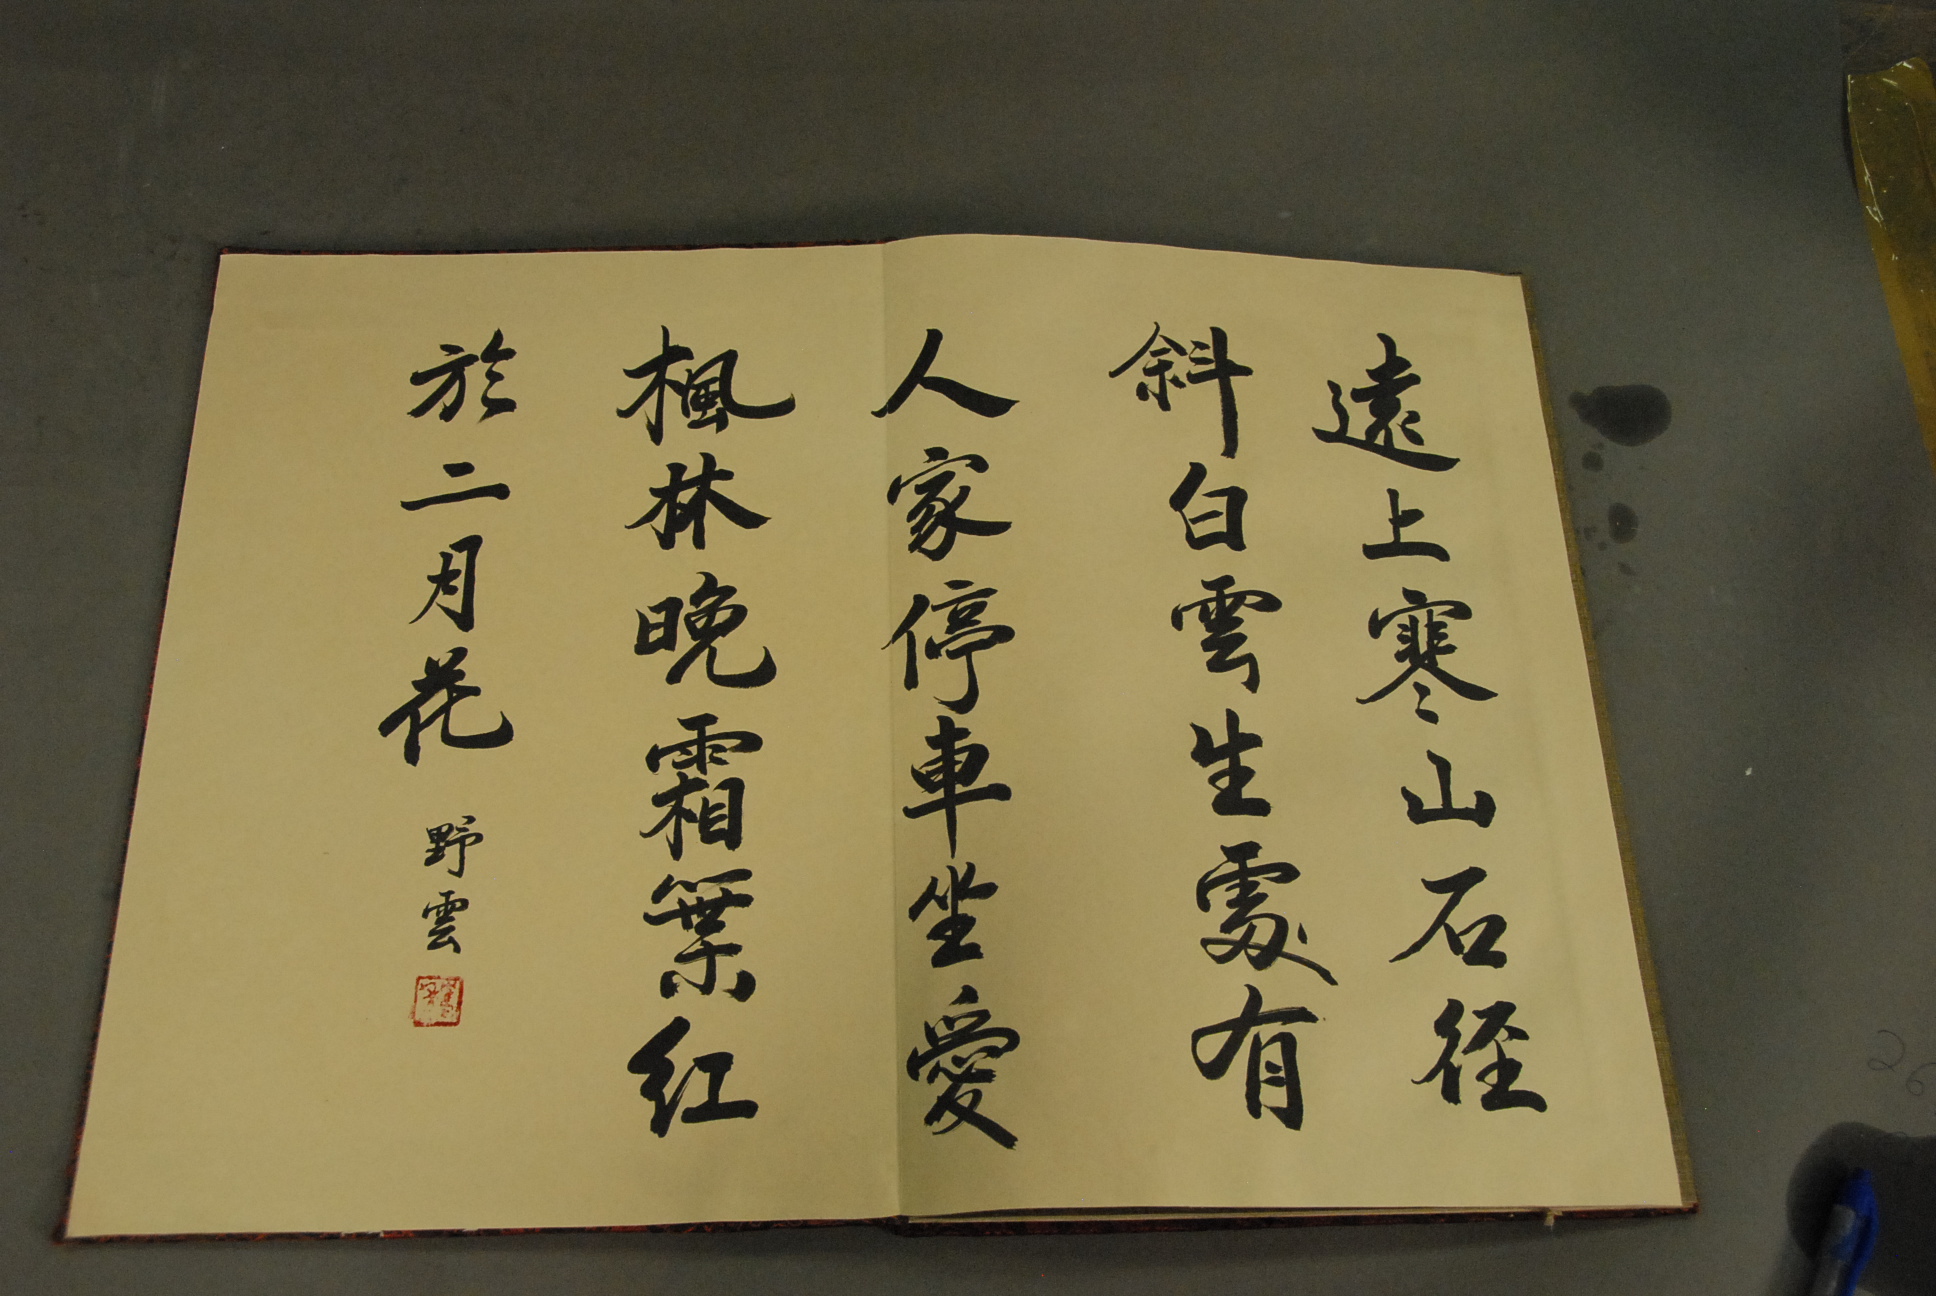 遠上寒山石径
斜白雲生處有
人家停車坐愛
楓林晚霜葉紅
於二月花
野雲
26